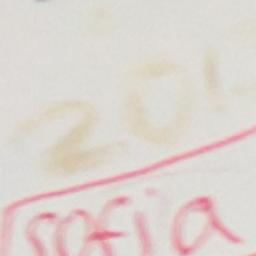 201
sofia